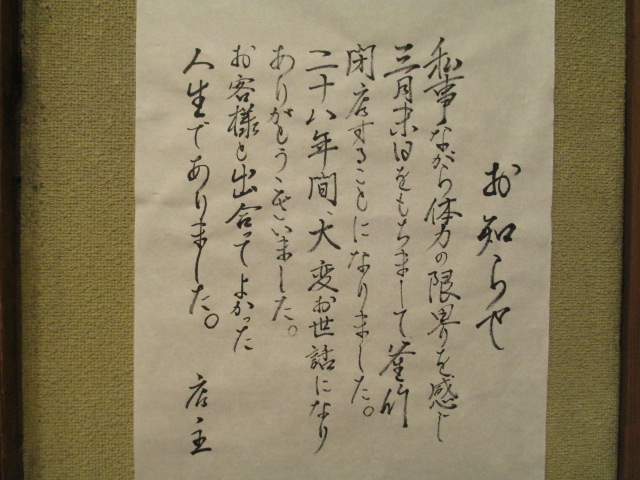 お知らせ
私事ながら体力の限界を感じ
三月末日をもちまして釜竹
閉店することになりました。
二十八年間、大変お世話になり
ありがとうございました。
お客様と出合ってよかった
人生でありました。
店主